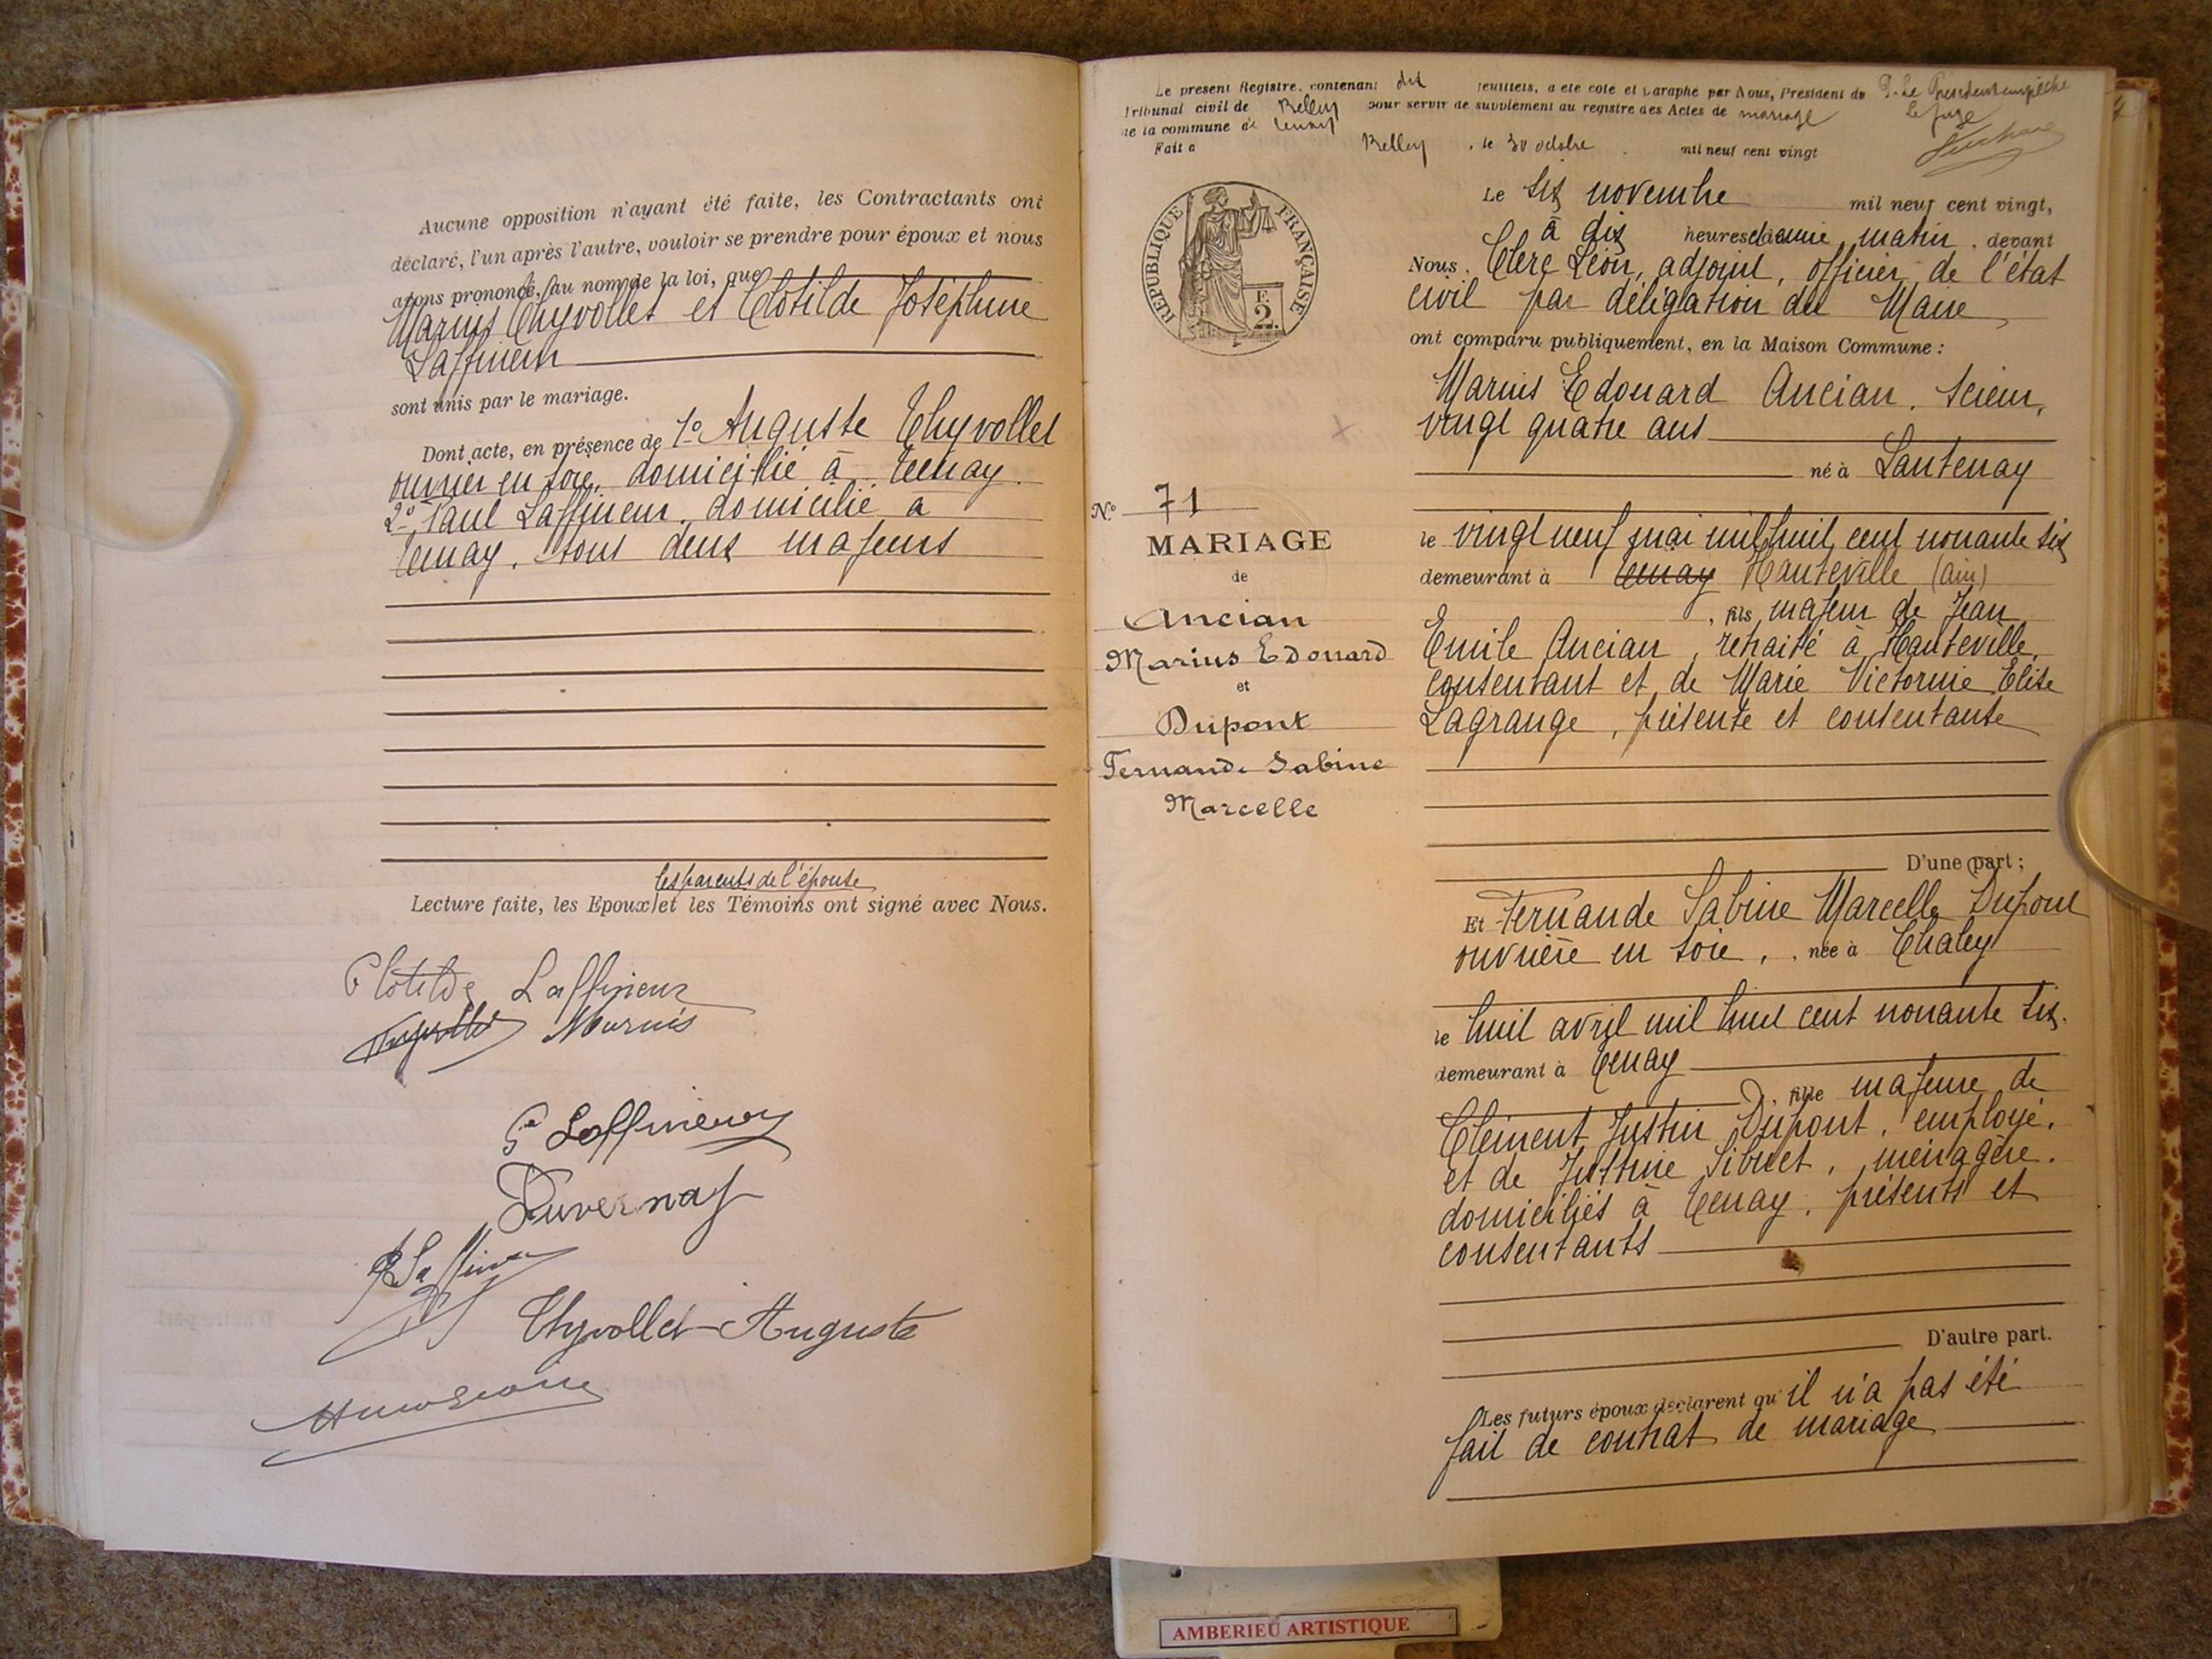 Aucune opposition n'ayant été faite, les Contractants ont
déclaré, l'un après l'autre, vouloir se prendre pour époux et nous
avons prononcé, au nom de la loi, que
Marius Thyvollet et Clotilde Joséphine
Laffineur
sont unis par le mariage.
Dont acte, en présence de 1º Auguste Thyvollet
ouvrier en soie, domicilié à Tenay.
2º Paul Laffineur, domicilié à
Tenay, tous deux majeurs
les parents de l'épouse
Lecture faite, les Epoux et les Témoins ont signé avec Nous.
Clotilde Laffineur
Thyvollet Marius
Laffineur
Duvernay
Thyvollet Auguste
Le présent Registre, contenant dix feuillets, a été coté et paraphé par Nous, Président du P. Le Président empêché
Tribunal civil de Belley pour servir de supplément au registre des Actes de mariage Le juge
de la commune de Tenay
Fait à Belley, le 30 octobre mil neuf cent vingt
RÉPUBLIQUE FRANÇAISE
2 F.
Le six novembre mil neuf cent vingt,
à dix heures demie matin, devant
Nous, Clerc Léon, adjoint, officier de l'état
civil par délégation du Maire
ont comparu publiquement, en la Maison Commune :
Marius Edouard Ancian, scieur,
vingt quatre ans
né à Lantenay
Nº 71
MARIAGE
de
Ancian
Marius Edouard
et
Dupont
Fernande Sabine
Marcelle
le vingt neuf mai mil huit cent nonante six
demeurant à Tenay Hauteville (Ain)
, fils majeur de Jean
Emile Ancian, retraité à Hauteville,
consentant et de Marie Victorine Elise
Lagrange, présente et consentante
D'une part ;
Et Fernande Sabine Marcelle Dupont
ouvrière en soie, , née à Chaley
le huit avril mil huit cent nonante six.
demeurant à Tenay
, fille majeure de
Clément Justin Dupont, employé,
et de Justine Sibuet, ménagère.
domiciliés à Tenay, présents et
consentants
D'autre part.
Les futurs époux déclarent qu'il n'a pas été
fait de contrat de mariage
AMBERIEU ARTISTIQUE